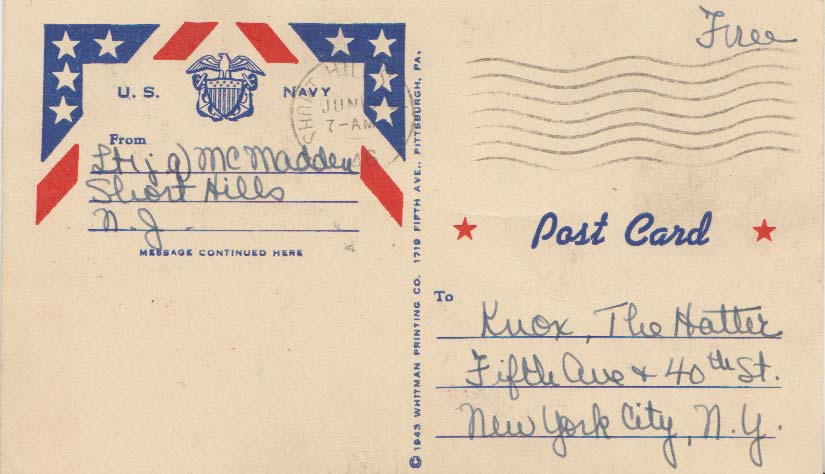 U. S. NAVY
From
Lt(jg) McMadden
Short Hills
N. J.
MESSAGE CONTINUED HERE
SHORT HILLS
JUN
7-AM
© 1943 WHITMAN PRINTING CO. 1719 FIFTH AVE., PITTSBURGH, PA.
Free
Post Card
To
Knox, The Hatter
Fifth Ave & 40th St.
New York City, N.Y.